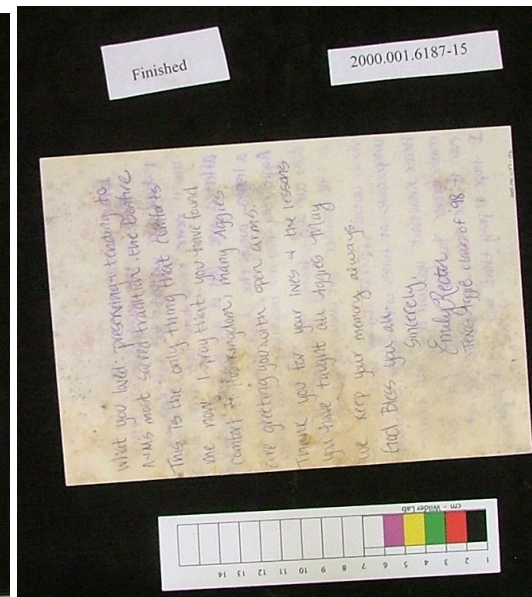 Finished
2000.001.6187-15
what you loved - preserving & tending to
A&M's most sacred tradition - the Bonfire.
This is the only thing that comforts
me now. I pray that you have found
comfort in His kingdom; many Aggies
are greeting you with open arms.
Thank you for your lives & the lessons
you have taught all Aggies. May
we keep your memory always.
God Bless you all.
Sincerely,
Emily Rector
Texas Aggie class of '98
cm - Wilder Lab
1 2 3 4 5 6 7 8 9 10 11 12 13 14